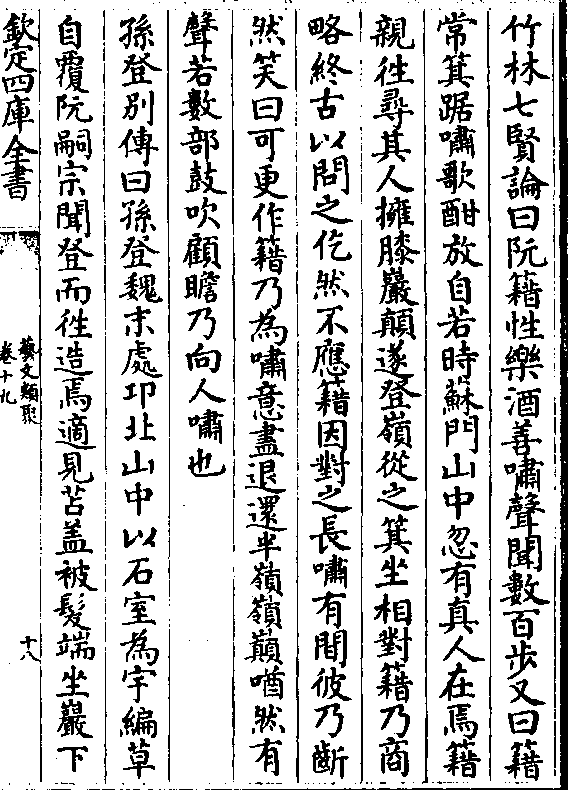 竹林七賢論曰阮籍性樂酒善嘯聲聞數百步又曰籍
常箕踞嘯歌酣放自若時蘇門山中忽有真人在焉籍
親徃尋其人擁膝巖顛遂登嶺從之箕坐相對籍乃商
略終古以問之仡然不應籍因對之長嘯有間彼乃斷
然笑曰可更作籍乃為嘯意盡退還半嶺嶺巔㗜然有
聲若數部鼓吹顧瞻乃向人嘯也
孫登別傳曰孫登魏末處邙北山中以石室為宇編草
自覆阮嗣宗聞登而徃造焉適見苫盖被髮端坐巖下
欽定四庫全書
藝文類聚
卷十九
十八